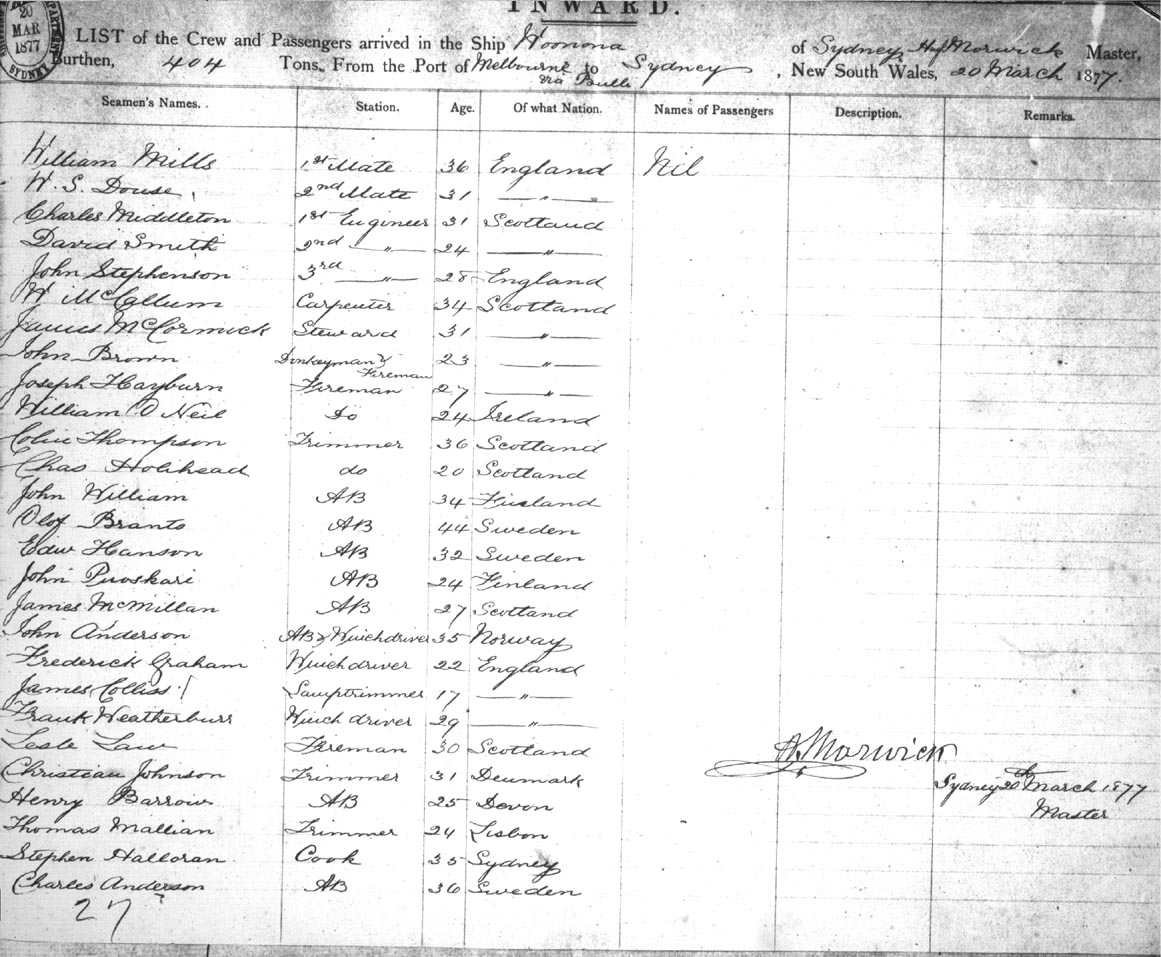 20
MAR
1877
SYDNEY
INWARD.
LIST of the Crew and Passengers arrived in the Ship Woonona of Sydney, Morwick Master,
Burthen, 404 Tons, From the Port of Melbourne to Sydney, New South Wales, 20 March 1877.
via Bulli
Seamen's Names. Station. Age. Of what Nation. Names of Passengers Description. Remarks.
William Mills 1st Mate 36 England Nil
W. S. Douse 2nd Mate 31 — " —
Charles Middleton 1st Engineer 31 Scotland
David Smith 2nd — " — 24 — " —
John Stephenson 3rd — " — 28 England
McCallum Carpenter 34 Scotland
James McCormick Steward 31 — " —
John Brown Donkeyman & Fireman 23 — " —
Joseph Hayburn Fireman 27 — " —
William O Neil do 24 Ireland
Colin Thompson Trimmer 36 Scotland
Chas Holihead do 20 Scotland
John William AB 34 Finland
Olof Brants AB 44 Sweden
Edw Hanson AB 32 Sweden
John Puoskari AB 24 Finland
James McMillan AB 27 Scotland
John Anderson AB & Winchdriver 35 Norway
Frederick Graham Winchdriver 22 England
James Colliss Lamptrimmer 17 — " —
Frank Weatherburr Winch driver 29 — " —
Lesle Law Fireman 30 Scotland
Morwick
Christian Johnson Trimmer 31 Denmark
Sydney 20th March 1877
Henry Barrow AB 25 Devon
Master
Thomas Mallian Trimmer 24 Lisbon
Stephen Halloran Cook 35 Sydney
Charles Anderson AB 36 Sweden
27